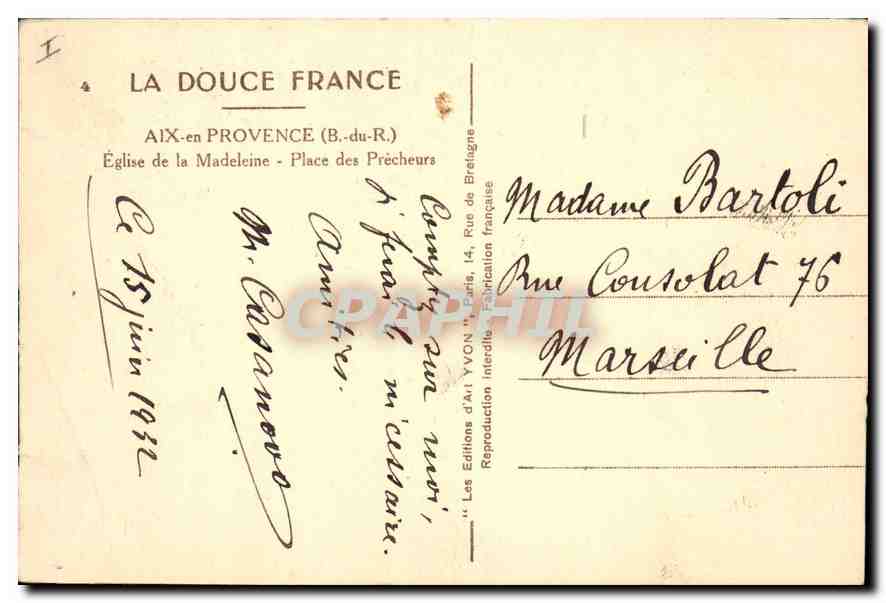 I
4 LA DOUCE FRANCE
AIX-en PROVENCE (B.-du-R.)
Église de la Madeleine - Place des Prêcheurs
Ce 15 juin 1932
Comptez sur moi,
j'ferai l' nécessaire.
Amitiés.
M. Casanova
" Les Editions d'Art YVON ", Paris, 14, Rue de Bretagne
Reproduction interdite. Fabrication française
Madame Bartoli
Rue Consolat 76
Marseille
CPAPHIL